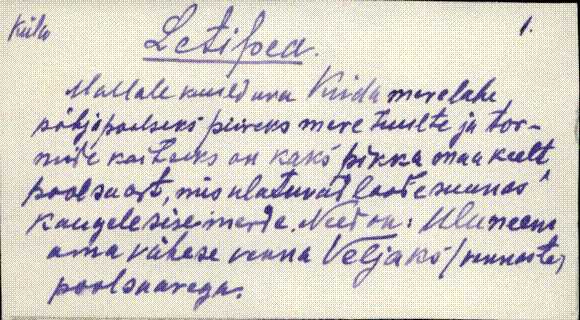 Küla
Letipea. 1.
Mallale kuuluva Kunda merelahe
põhjapoolseks piireks mere tuulte ja tor-
mide kaitseks on kaks pikka maakeelt
poolsaart, mis ulatuvad loode suunas
kaugele sisse merde. Need on: Uluneem
oma vähese venna Veljaks/
poolsaarega.